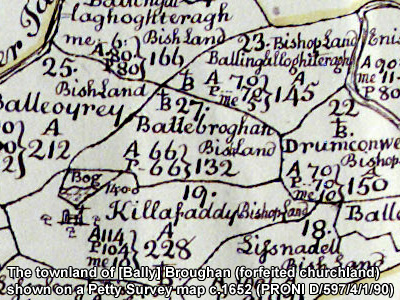 laghoghteragh
me. 6.
Bish Land
P 80
166
23. Bishop Land
Ballingilloghiteragh
A 70
145
25.
Bish Land
Balleoyrey
A
212
27.
Ballebroghan
A 66
Bis Land
P 66
132
22
Drumconwe
Bishop
A 70
A
150
Bog
19.
Killafaddy Bishop Land
18.
Balle
A 114
P 104
A
228
Lissnadell
Bishop Land
The townland of [Bally] Broughan (forfeited churchland)
shown on a Petty Survey map c.1652 (PRONI D/597/4/1/90)